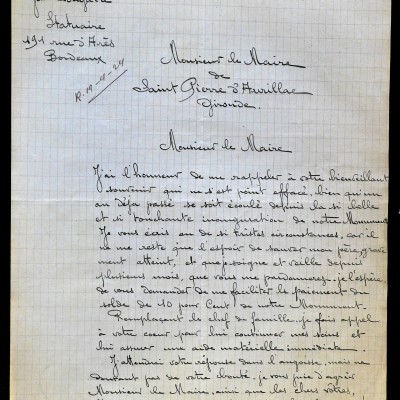 Statuaire
191 rue d'Arès
Bordeaux
R. 19-11-24
Monsieur le Maire
de
Saint Pierre d'Aurillac
Gironde.
Monsieur le Maire
J'ai l'honneur de me rappeler à votre bienveillant
souvenir qui ne s'est point effacé, bien qu'un
an déjà passé se soit écoulé depuis la si belle
et si touchante inauguration de notre Monument
Je vous écris en de si tristes circonstances, car il
ne me reste que l'espoir de sauver mon père, grave
ment atteint, et que je soigne et veille depuis
plusieurs mois, que vous me pardonnerez, je l'espère,
de vous demander de me faciliter le paiement du
solde de 10 pour Cent de notre Monument.
Remplaçant le chef de famille, je fais appel
à votre cœur pour lui continuer mes soins et
lui assurer une aide matérielle immédiate.
J'attendrai votre réponse dans l'angoisse, mais ne
doutant pas de votre bonté, je vous prie d'agréer
Monsieur le Maire, ainsi que les chers vôtres,